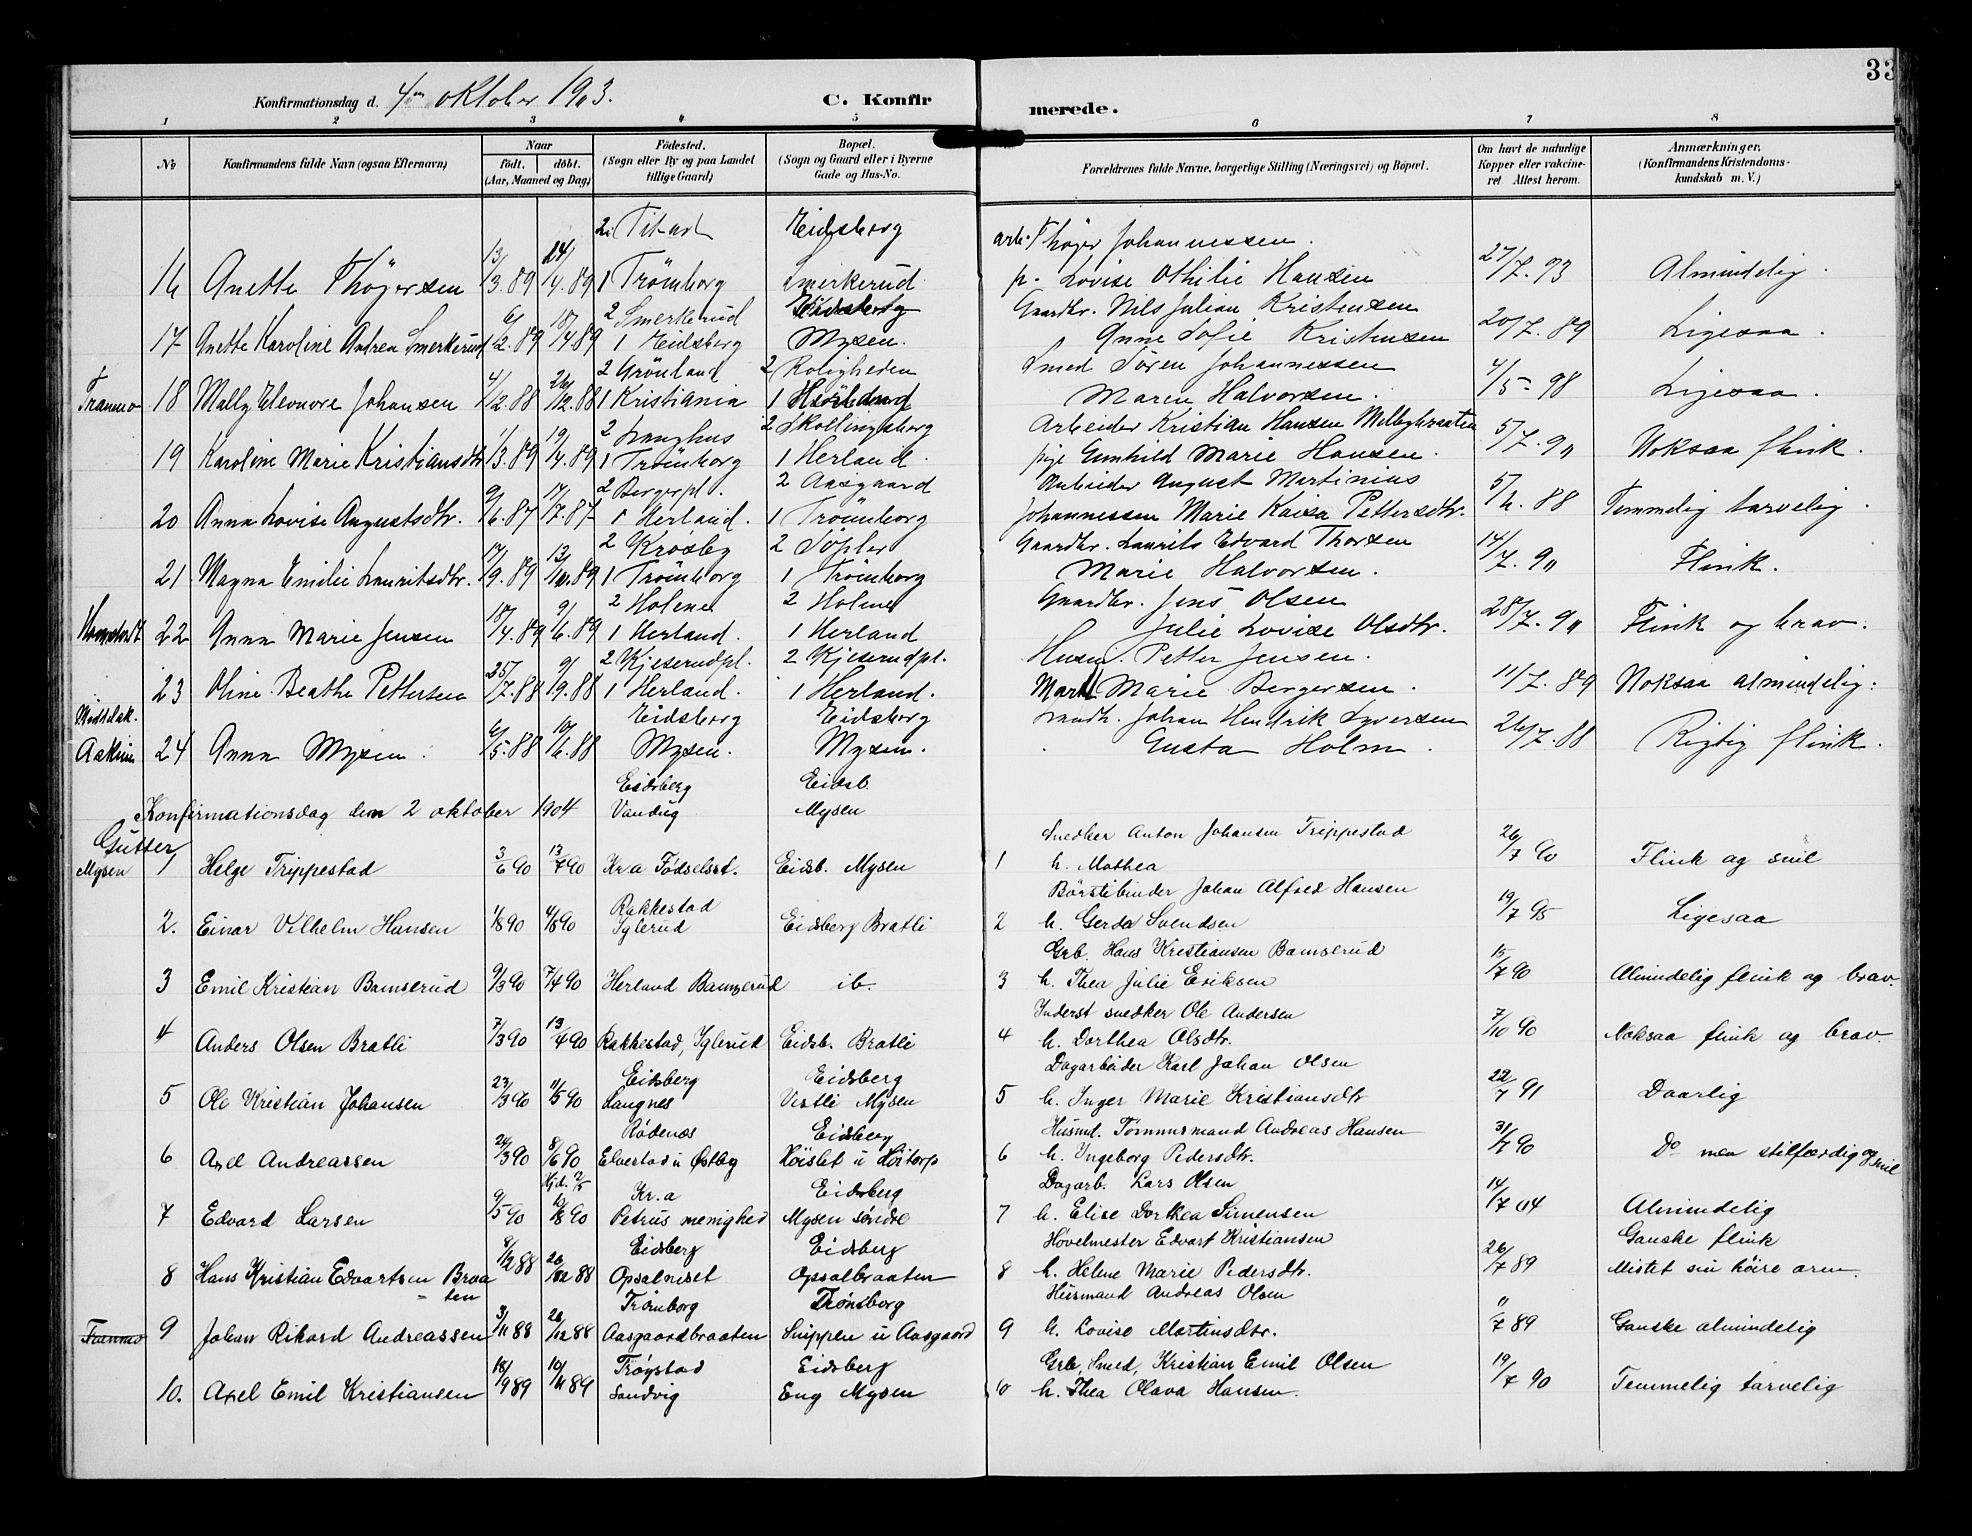 33
Konfirmationsdag d. 4de oktober 1903. C. Konfirmerede.
1 2 3 4 5 6 7 8
No Konfirmandens fulde Navn (ogsaa Efternavn) Naar født. døbt. (Aar, Maaned og Dag) Fødested. (Sogn eller By og paa Landet tillige Gaard) Bopæl. (Sogn og Gaard eller i Byerne Gade og Hus-No. Forældrenes fulde Navne, borgerlige Stilling (Næringsvei) og Bopæl. Om havt de naturlige Kopper eller vakcineret Attest herom. Anmærkninger. (Konfirmandens Kristendomskundskab m. V.)
2 Eidsberg arb. Thøger Johannessen.
16 Anette Thøgersen 13/3.89 24/4.89 1 Trømborg Smerkerud p. Lovise Othilie Hansen 27/7.93 Almindelig.
2 Smerkerud Gaardbr. Nils Julian Kristensen
17 Anette Karoline Andrea Smerkerud 6/2.89 18/4.89 1 Eidsberg Mysen. Anne Sofie Kristensen 20/7.89 Ligesaa.
2 Grönland 2 Roligheden Smed Søren Johannessen
Tranmo 18 Mally Eleonore Johansen 4/2.88 26/12.88 1 Kristiania 1 Maren Halvorsen. 4/5-98 Ligesaa.
2 Langhus 2 Skollengsborg Arbeider Kristian Hansen Melbybraaten
19 Karoline Marie Kristiansdtr 1/3.89 19/4.89 1 Trömborg 1 Herland. pige Gunhild Marie Hansen. 5/7.90 Noksaa flink.
2 Bergerpl. 2 Aasgaard Arbeider August Martinius
20 Anna Lovise Augustsdtr. 9/6.87 17/7.87 1 Herland. 1 Trömborg Johannessen Marie Kaisa Pettersdtr. 88 Temmelig tarvelig.
2 Krosby 2 Töpler Gaardbr. Laurits Edvard Thorsen
21 Magna Emilie Lauritsdtr. 17/9.89 13/10.89 1 Trömborg 1 Trömborg Marie Halvorsen. 14/7.90 Flink.
2 Holene 2 Holene Gaardbr. Jens Olsen
22 Anna Marie Jensen 18/4.89 9/6.89 1 Herland. 1 Herland Julie Lovise Olsdtr. 28/7.90 Flink og brav.
2 Kjeserudpl. 2 Kjeserudpl. Husm. Petter Jensen.
23 Oline Beathe Pettersen 25/7.88 9/9.88 1 Herland. 1 Herland. Marie Bergersen. 11/7.89 Noksaa almindelig.
Eidsberg Eidsberg Landh. Johan Hendrik Syversen
Askim 24 Anna Mysen. 6/5.88 10/6.88 Mysen. Mysen. Gusta Holm. 26/7.88 Rigtig flink.
Eidsberg Eidsb.
Konfirmationsdag den 2 oktober 1904 Vandug Mysen
Gutter Snedker Anton Johansen Trippestad
Mysen 1 Helge Trippestad 3/6 90 13/7 90 Kr.a Fødselsst. Eidsb. Mysen 1 h. Mathea 26/7 90 Flink og snil
Rakkestad Børstebinder Johan Alfred Hansen
2. Einar Vilhelm Hansen 1/8 90 4/8 90 Iglerud Eidsberg Bratli 2 h. Gerda Svendsen 19/7 95 Ligesaa
Grb. Hans Kristiansen Bamserud
3 Emil Kristian Bamserud 9/3 90 7/4 90 Herland Bamserud ib. 3 h. Thea Julie Eriksen 15/7 90 Almindelig flink og brav.
Inderst snedker Ole Andersen
4 Anders Olsen Bratli 7/3 90 13/4 90 Rakkestad, Iglerud Eidsb. Bratli 4 h. Dorthea Olsdtr. 7/10 90 Noksaa flink og brav.
Eidsberg Eidsberg Dagarbeider Karl Johan Olsen
5 Ole Kristian Johansen 23/3 90 11/5 90 Langnes Vestli Mysen 5 h. Inger Marie Kristiansdtr 22/7 91 Daarlig
Rødenæs Eidsberg Husmd. Tømmermand Andreas Hansen
6 Axel Andreassen 24/3 90 8/6 90 Elvestad u Østby Høislet u Høitorp 6 h. Ingeborg Pedersdtr. 31/7 90 Do men stilfærdig og snil
Hjd. 2/5 Kr.a Eidsberg Dagarb. Lars Olsen
7 Edvard Larsen 9/5 90 10/8 90 Petrus menighed Mysen søndre 7 h. Elise Dorthea Simensen 14/7 04 Almindelig
Eidsberg Eidsberg Høvelmester Edvart Kristiansen Ganske flink
8 Hans Kristian Edvartsen Braaten 8/12 88 26/12 88 Opsalneset Opsalbraaten 8 h. Helene Marie Pedersdtr. 26/7 89 Mistet sin høire arm.
Trømborg Trømborg Husmand Andreas Olsen
Tranmo 9 Johan Rikard Andreassen 3/11 88 26/12 88 Aasgaardbraaten Snippen u Aasgaard 9 h. Lovise Martinsdtr. 11/7 89 Ganske almindelig
Trøgstad Eidsberg Grb. Smed, Kristian Emil Olsen
10. Axel Emil Kristiansen 18/9 89 10/11 89 Sandvig Eng Mysen 10 h. Thea Olava Hansen. 19/7 90 Temmelig tarvelig